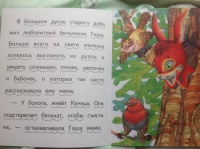 В большом дупле старого дуба
жил любопытный бельчонок Гоша.
Больше всего на свете малышу
хотелось выглянуть из дупла и
увидеть солнышко, птичек, цветочки
и бабочек, о которых так часто
рассказывала ему мама.
— У болота, живёт Куница. Она
подстерегает бельчат, чтобы съесть
их, — останавливала Гошу мама.